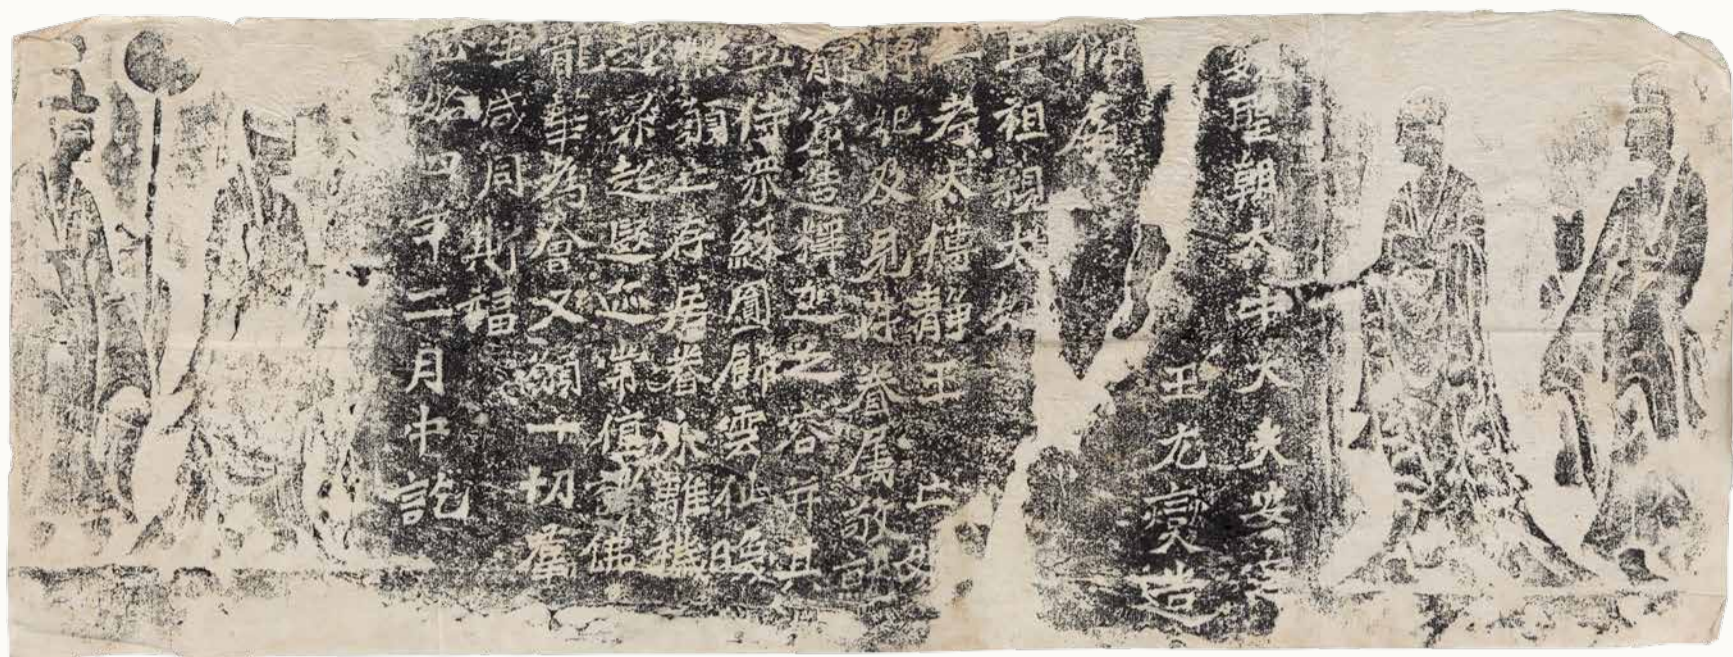 魏聖朝太中大夫安定
王元燮造
仰為
亡祖親太妃
亡考太傅靜王亡妣
蔣妃及見存眷屬敬就
靜窟造釋迦之容并其
立侍眾綵圓飾雲仙喚
然願亡存居眷永離穢
趣升超遐迹常值諸佛
龍華為會又願一切群
生咸同斯福
正始四年二月中訖